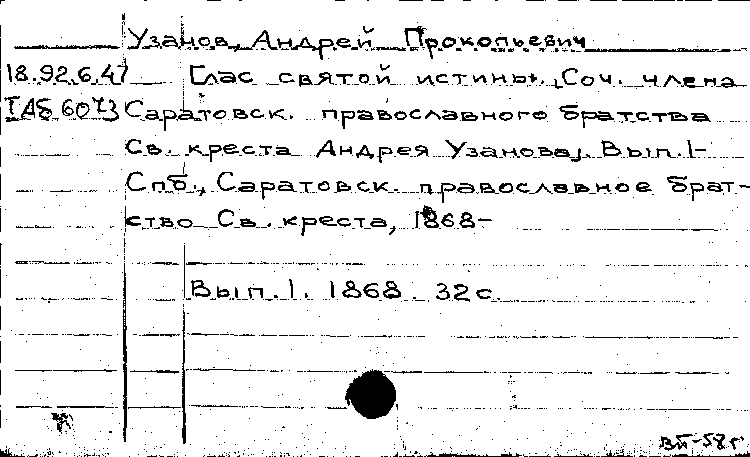 Узанов, Андрей Прокопьевич
18.92.6.47 Глас святой истины. Соч. члена
IАб 6073 Саратовск. православного братства
Св. креста Андрея Узанова. Вып. 1-
Спб., Саратовск. православное брат-
ство Св. креста, 1868-
Вып. 1. 1868. 32 с.
ВП-58г